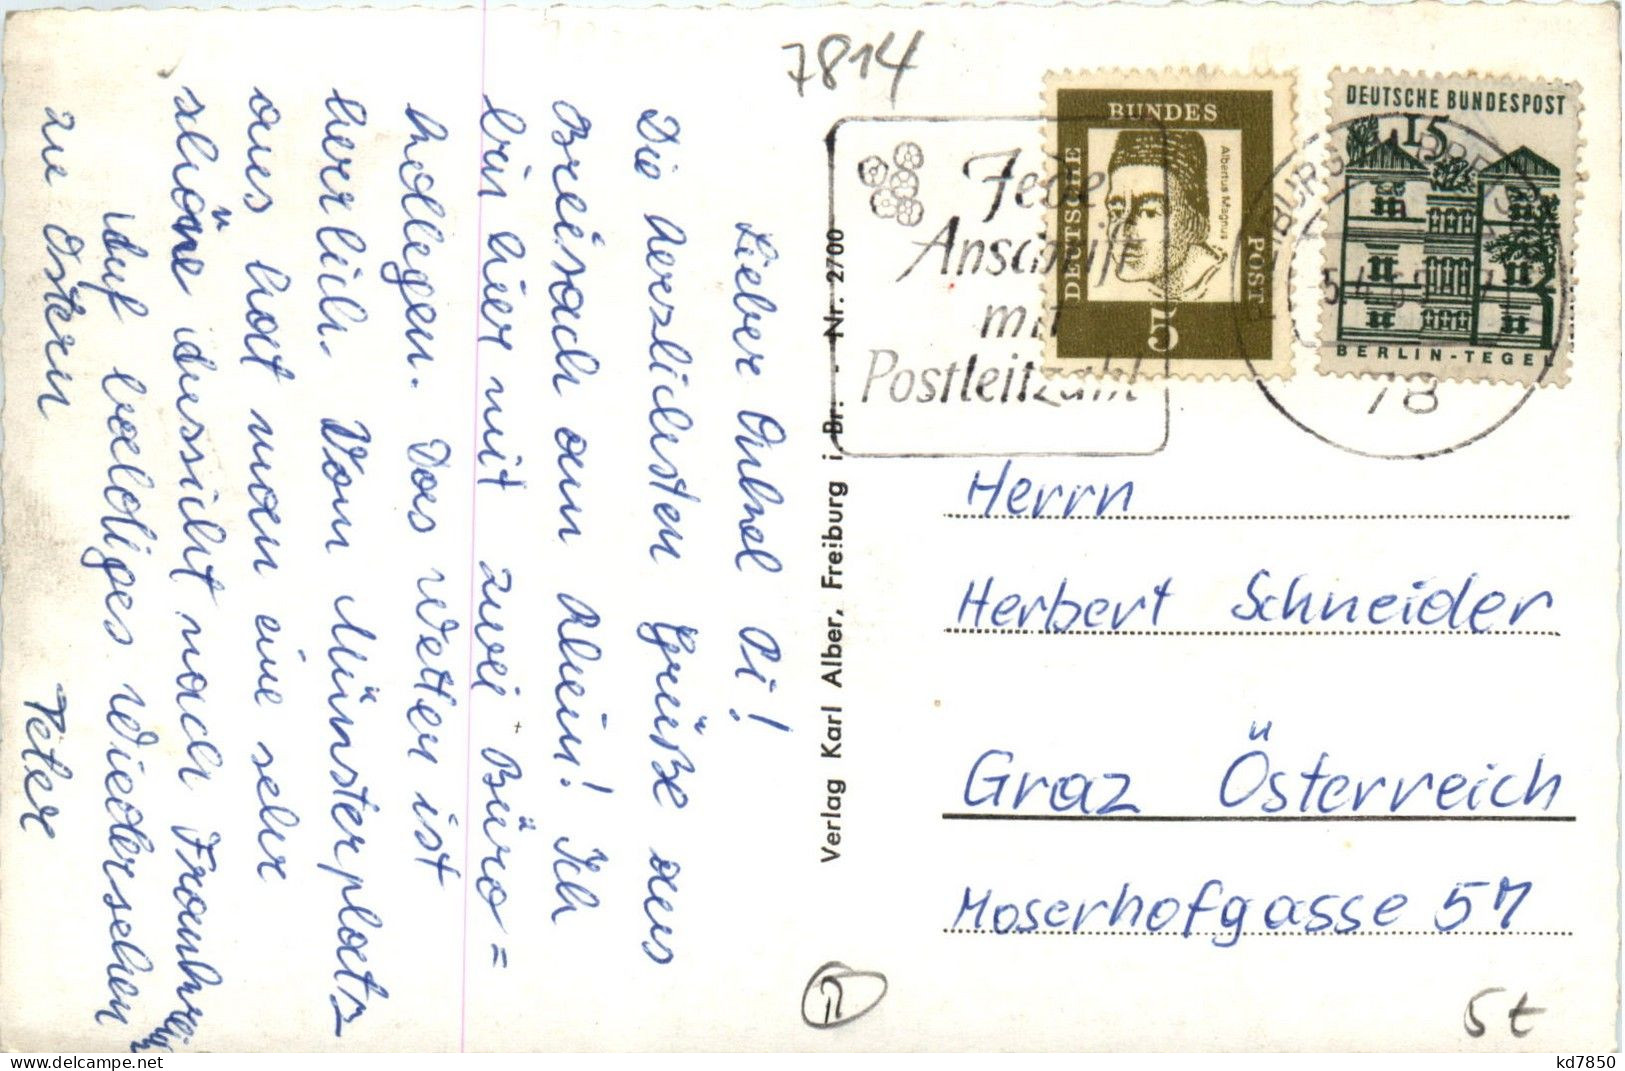 7814
Lieber Onkel Pi!
Die herzlichsten Grüße aus
Breisach am Rhein! Ich
bin hier mit zwei Büro=
kollegen. Das Wetter ist
herrlich. Vom Münsterplatz
aus hat man eine sehr
schöne Aussicht nach Frankreich
Auf baldiges Wiedersehen
zu Ostern
Peter
Verlag Karl Alber, Freiburg i. Br. - Nr. 2700
Jede
Anschrift
mit
Postleitzahl
BUNDES
DEUTSCHE
POST
Albertus Magnus
5
DEUTSCHE BUNDESPOST
15
BERLIN-TEGEL
78
Herrn
Herbert Schneider
Graz Österreich
Moserhofgasse 57
5t
kd7850